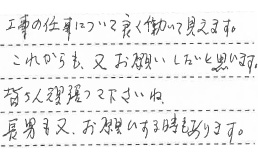 工事の仕事について良く働いて見えます。
これからも、又お願いしたいと思います。
皆さん頑張って下さいね。
長男も又、お願いする時もあります。